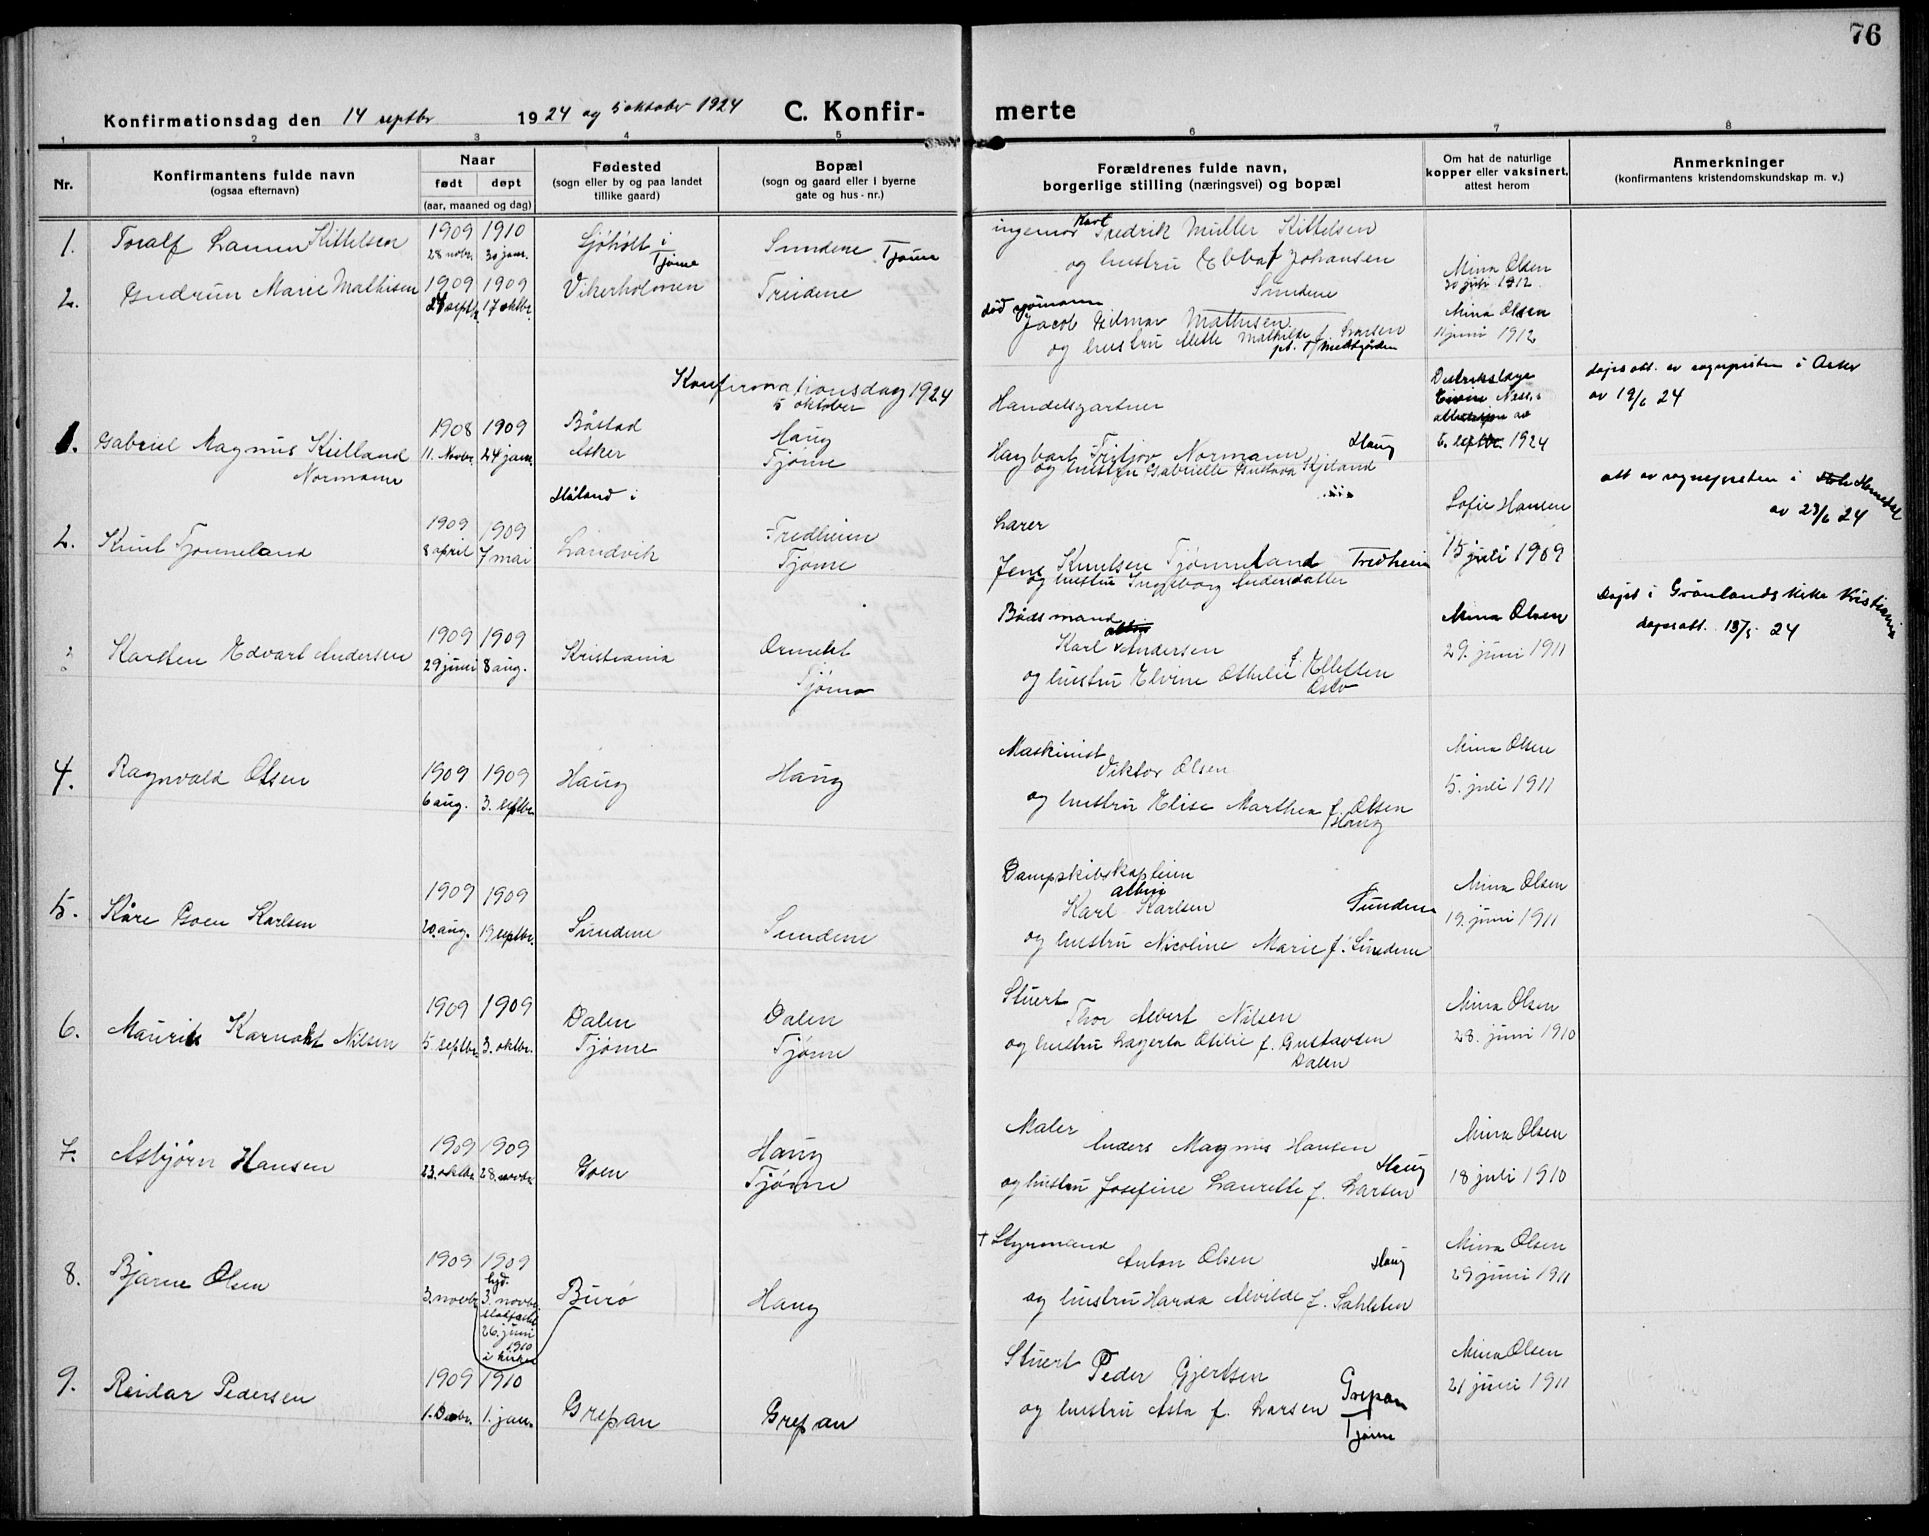 76
Konfirmationsdag den 14 septbr 1924 og 5 oktober 1924 C. Konfirmerte
1 2 3 4 5 6 7 8
Nr.
Konfirmantens fulde navn
(ogsaa efternavn)
Naar
født døpt
(aar, maaned og dag)
Fødested
(sogn eller by og paa landet
tillike gaard)
Bopæl
(sogn og gaard eller i byerne
gate og hus-nr.)
Forældrenes fulde navn,
borgerlige stilling (næringsvei) og bopæl
Om hat de naturlige
kopper eller vaksinert,
attest herom
Anmerkninger
(konfirmantens kristendomskundskap m. v.)
1. Toralf Kittelsen
1909 1910
28 novbr. 30 jan.
i Tjøme
Sundene Tjøme
ingeniør Karl Fredrik Müller Kittelsen
og hustru Ebba f Johansen
Sundene
Mina Olsen
30 juli 1912
2. Gudrun Marie Mathisen
1909 1909
septbr. 17 oktbr.
Vikerholmen
død sjømann
Jacob Hilmar Mathisen
og hustru Mette Mathilde f. Larsen
Mina Olsen
11 juni 1912
Konfirmationsdag 1924
5 oktober
1. Gabriel Magnus Kielland
Normann
1908 1909
11. Novbr. 24 jan.
Båstad
Asker
Haug
Tjøme
Handelsgartner
Hagbart Fritjov Normann Haug
og hustru Gabrielle Gustava Kjeland
Distriktslæge
Ness,
5. septbr. 1924
døpsatt. av sogneprsten i Asker
av 19/6 24
2. Knut Tjønneland
1909 1909
8 april 7 mai
Håland i
Landvik
Fredheim
Tjøme
Lærer
Jens Knutsen Tjønneland Fredheim
og hustru Ingeborg Andersdatter
Sofie Hansen
15 juli 1909
att av sogneprsten i
av 23/6 24
3 Karsten Edvart Andersen
1909 1909
29 juni 8 aug.
Kristiania
Ormelet
Tjøme
Bådsmand
Karl Albin Andersen
og hustru Elvine Othelie f. Ellefsen
Oslo
Mina Olsen
29. juni 1911
Døpt i Grønlands kirke Kristiania
døpsatt. 13/5 24
4. Ragnvald Olsen
1909 1909
6 aug. 3. septbr.
Haug
Haug
Maskinist
Viktor Olsen
og hustru Elise Marthea f. Olsen
Haug
Mina Olsen
5. juli 1911
5. Kåre Goen Karlsen
1909 1909
20. aug. 19 septbr.
Sundene
Sundene
Dampskibskaptein
Karl Albin Karlsen Sundene
og hustru Nicoline Marie f. Sundene
Mina Olsen
19. juni 1911
6. Maurits Nilsen
1909 1909
5 septbr. 3. oktbr.
Dalen
Tjøme
Dalen
Tjøme
Stuert
Thor Alvert Nilsen
og hustru Lagerta Otilie f. Gustavsen
Dalen
Mina Olsen
28. juni 1910
7. Asbjørn Hansen
1909 1909
23. oktbr. 28. novbr.
Goen
Haug
Tjøme
Maler
Anders Magnus Hansen
Haug
og hustru Josefine Laurette f. Larsen
Mina Olsen
18 juli 1910
8. Bjarne Olsen
1909 1909
3. novbr. hjd.
3. novbr.
stadfestet
26. juni
1910
i kirken
Burø
Haug
+ Styrmand
Anton Olsen Haug
og hustru Harda Alvilde f. Sahlsten
Mina Olsen
29 juni 1911
9. Reidar Pedersen
1909 1910
1. Debr. 1. jan.
Grepan
Grepan
Stuert Peder Gjertsen
og hustru Asta f. Larsen Grepan
Tjøme
Mina Olsen
21 juni 1911